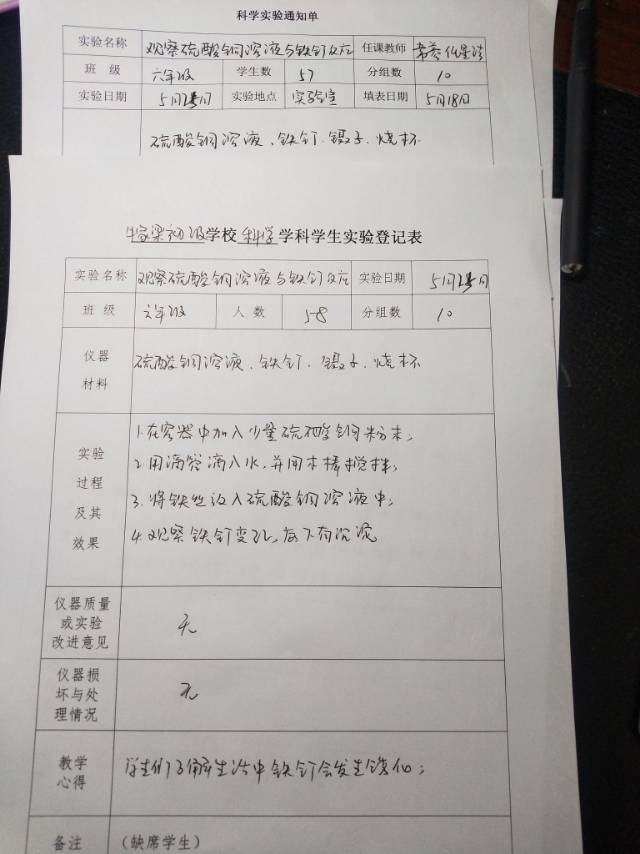 科学实验通知单
实验名称 观察硫酸铜溶液与铁钉反应 任课教师
班 级 六年级 学生数 57 分组数 10
实验日期 5月 日 实验地点 实验室 填表日期 5月18日
硫酸铜溶液、铁钉、镊子、烧杯
学校 科学 学科学生实验登记表
实验名称 观察硫酸铜溶液与铁钉反应 实验日期 5月 日
班 级 六年级 人 数 58 分组数 10
仪器
材料
硫酸铜溶液、铁钉、镊子、烧杯
实验
过程
及其
效果
1.在容器中加入少量硫酸铜粉末;
2.用滴管滴入水,并用木棒搅拌;
3.将铁丝放入硫酸铜溶液中;
4.观察铁钉变红,底下有沉淀
仪器质量
或实验
改进意见
无
仪器损
坏与处
理情况
无
教学
心得
学生们了解生活中铁钉会发生锈化;
备注 (缺席学生)